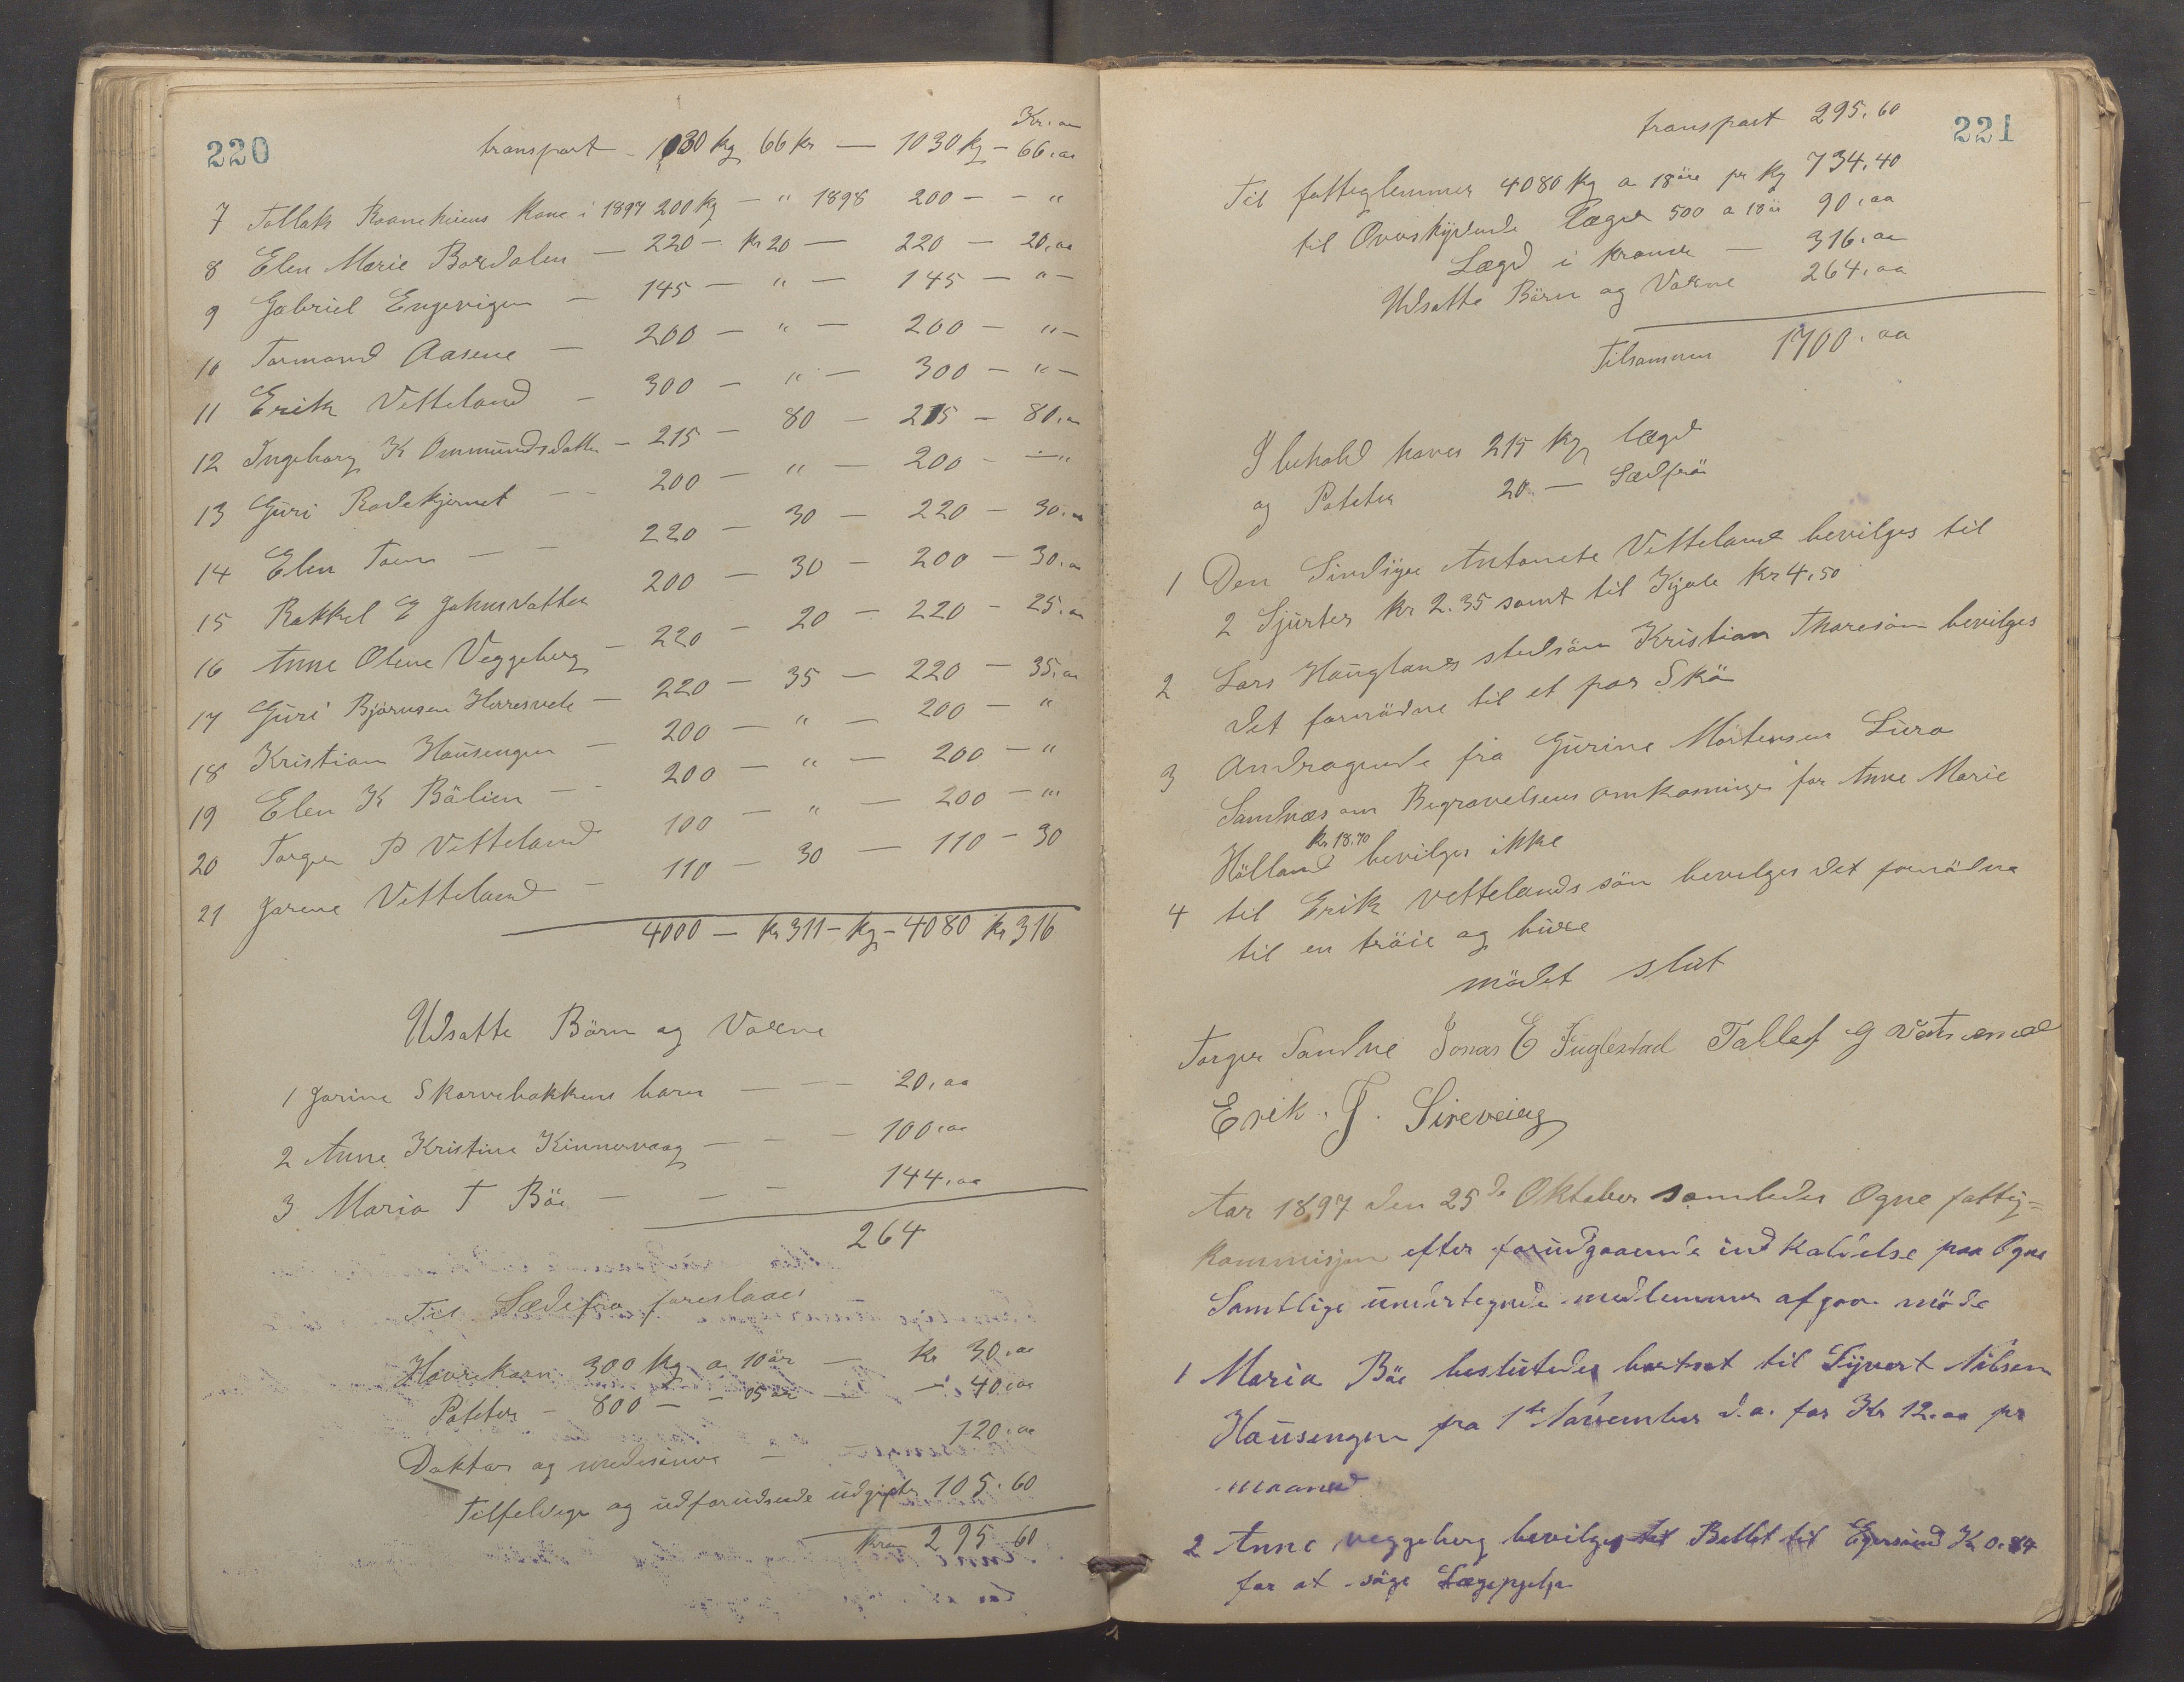 220
Kr. aa
transport - 1030 kg 66 kr — 1030 kg - 66,aa
7 Tollak Raaneheiens Kone i 1897 200 kg - " 1898 200 - - "
8 Elen Marie Bordalen — 220 - kr 20 — 220 - 20,aa
9 Gabriel Engevigen — 145 — " — 145 - " -
10 Tormand Aasene — 200 — " — 200 - " -
11 Erik Vetteland — 300 — " — 300 - " -
12 Ingeborg K Ommundsdatter - 215 — 80 — 215 - 80,aa
13 Guri Rodekjernet — 200 — " — 200 - "
14 Elen Toen — — 220 — 30 — 220 - 30,aa
15 Rakkel E Johnsdatter 200 — 30 — 200 - 30,aa
16 Anne Olene Veggeberg - 220 — 20 — 220 - 25,aa
17 Guri Bjørnsen Herresvele - 220 — 35 — 220 - 35,aa
18 Kristian Hausengen — 200 — " — 200 - "
19 Elen K Bälien — 200 — " — 200 - "
20 Torger P Vetteland 100 — " — 200 - "
21 Jorene Vetteland — 110 — 30 — 110 - 30
4000 — Kr 311 - Kg - 4080 Kr 316
Udsatte Börn og Voxne
1 Jorine Skorvebakkens barn — — 20,aa
2 Anne Kristine Kinnervaag — — 100,aa
3 Maria T Böe — — — 144,aa
264
Til Sædefrø foreslaaes
Havrekorn 300 kg a 10 ör — Kr 30,aa
Poteter - 800 — - 05 ör — - 40,aa
Doktor og medesinve — 120,aa
Tilfeldige og udforudseede udgifter 105.60
Kron 295 60
221
transport 295,60
Til fattiglemmer 4080 kg a 18 öre pr kg 734,40
til Ovvskydende lægd 500 a 18 ör 90,aa
Lægd i kroner — 316,aa
Udsatte Börn og Voxne 264,aa
Tilsammen 1700,aa
I behold haves 215 kg lægd
og Poteter 20 — Sædfrö
1 Den Sindsige Antonete Vetteland bevilges til
2 Sjurter kr 2.35 samt til Kjole kr 4,50
2 Lars Hauglands stedsön Kristian Thoresön bevilges
det fornödne til et par Skö
3 Andragende fra Gurine Mortensen Lura
Sandnæs om Begravelsens omkosninger for Anne Marie
kr 18.70
Hölland bevilges ikke
4 til Erik Vettelands sön bevelges det fornödne
til en tröie og buxe
mödet slut
Torger Sandve Jonas E Fuglestad Tallef G Vatnemoe
Erik. T. Sirevaag
Aar 1897 den 25de Oktober samledes Ogne fattig=
Kommisjon efter forudgaaende indkaldelse paa Ogne
Samtlige undertegnede medlemmer afgav møde
1 Maria Böe besluttedes bortsat til Sijvert Nilsen
Hausengen fra 1te November d.a. for Kr 12.aa pr
maaned
2 Anne Veggeberg bevilges til Bellet til Egersund K 0.84
for at söge Lægehjelp